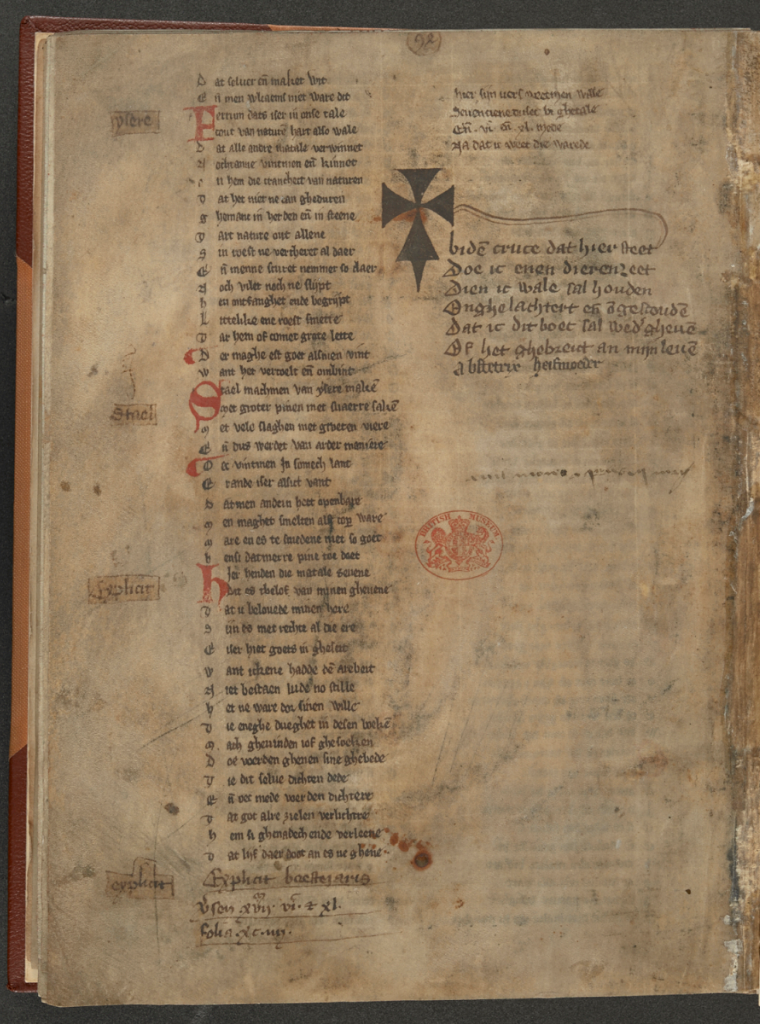 92
D at seluer en̄ maket wit
E n̄ men
ysere
F errum dats iser in onse tale
E tout van nature hart also wale
D at alle andre matale verwinnet
in hem die van naturen
D at het niet ne can gheduren
g hemanc in herden en̄ in steene
D art nature out allene
S in roest ne verthert al daer
E n̄ menne sciret nemmer so claer
A och vilet noch ne slijpt
h en ontfanghet ende begrijpt
L ittelkie ene roest smette
D at hem of comet grote lette
D er maghe est goet alsment vint
W ant het vercoelt en̄ ombint
Stael
S tael machmen van ysere maken̄
M et groter pinen met suaerre saken̄
M et vele slaghen met groten viere
E n̄ dus werdet van arder maniere
O ec vintmen in somech lant
E rande iser alsict vant
D atmen andein heet openbare
M en maghet smelten alst coper ware
M are en es te smedene niet so goet
h ensi datmerre pine toe doet
explicit
H ier henden die matale seuene
dit es tbelof van minen gheuene
D at ic belouede minen here
S un es met rechte al die ere
E iser hiet goets in ghescit
W ant ickene hadde dē arebeit
N iet bestaen lude no stille
h et ne ware dor sinen wille
D ie eneghe dueghet in desen weken̄
M ach gheuinden iof ghesoeken
D oe worden gheuen sine ghebede
D ie dit selue dichten dede
E n̄ oec mede vor den dichtere
D at got alre zielen verlichtere
h em si ghenadech ende verleene
D at lijf daer doot an es ne gheene
explicit
Explicit boesteiaris
vson xvıȷ. vı. ⁊ xl.
folia xc. ııȷ.
hier sijn vers weetmen wille
Seuenwerf
En̄ .vi. en̄ .xl. mede
Ja dat ic weet die warede
biden̄ cruce dat hier steet
Doe ic enen dieren eet
Dien ic wale sal houden
Onghelachtert en̄ ōgescouden̄
Dat ic dit boec sal wed'gheuen̄
Of het ghebreict an mijn leuen̄
BRITISH MUSEUM